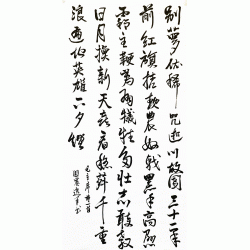 别夢依稀咒逝川故園三十二年
前紅旗捲起農奴戟黑手高懸
霸主鞭為有犧牲多壯志敢教
日月換新天喜看稻菽千重
浪遍地英雄下夕煙